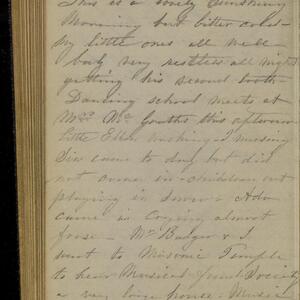 This is a lovely Sunshiny
Morning but bitter cold-
My little ones all well-
baby very restless all night
getting his second tooth-
Dancing school meets at
Mrs Mc this afternoon
Little Ellen
came to day but did
not come in - children out
playing in snow - Ada
came in crying almost
froze - Mr Badger & I
went to Masonic Temple
to hear Musical Society
a very large house - Music